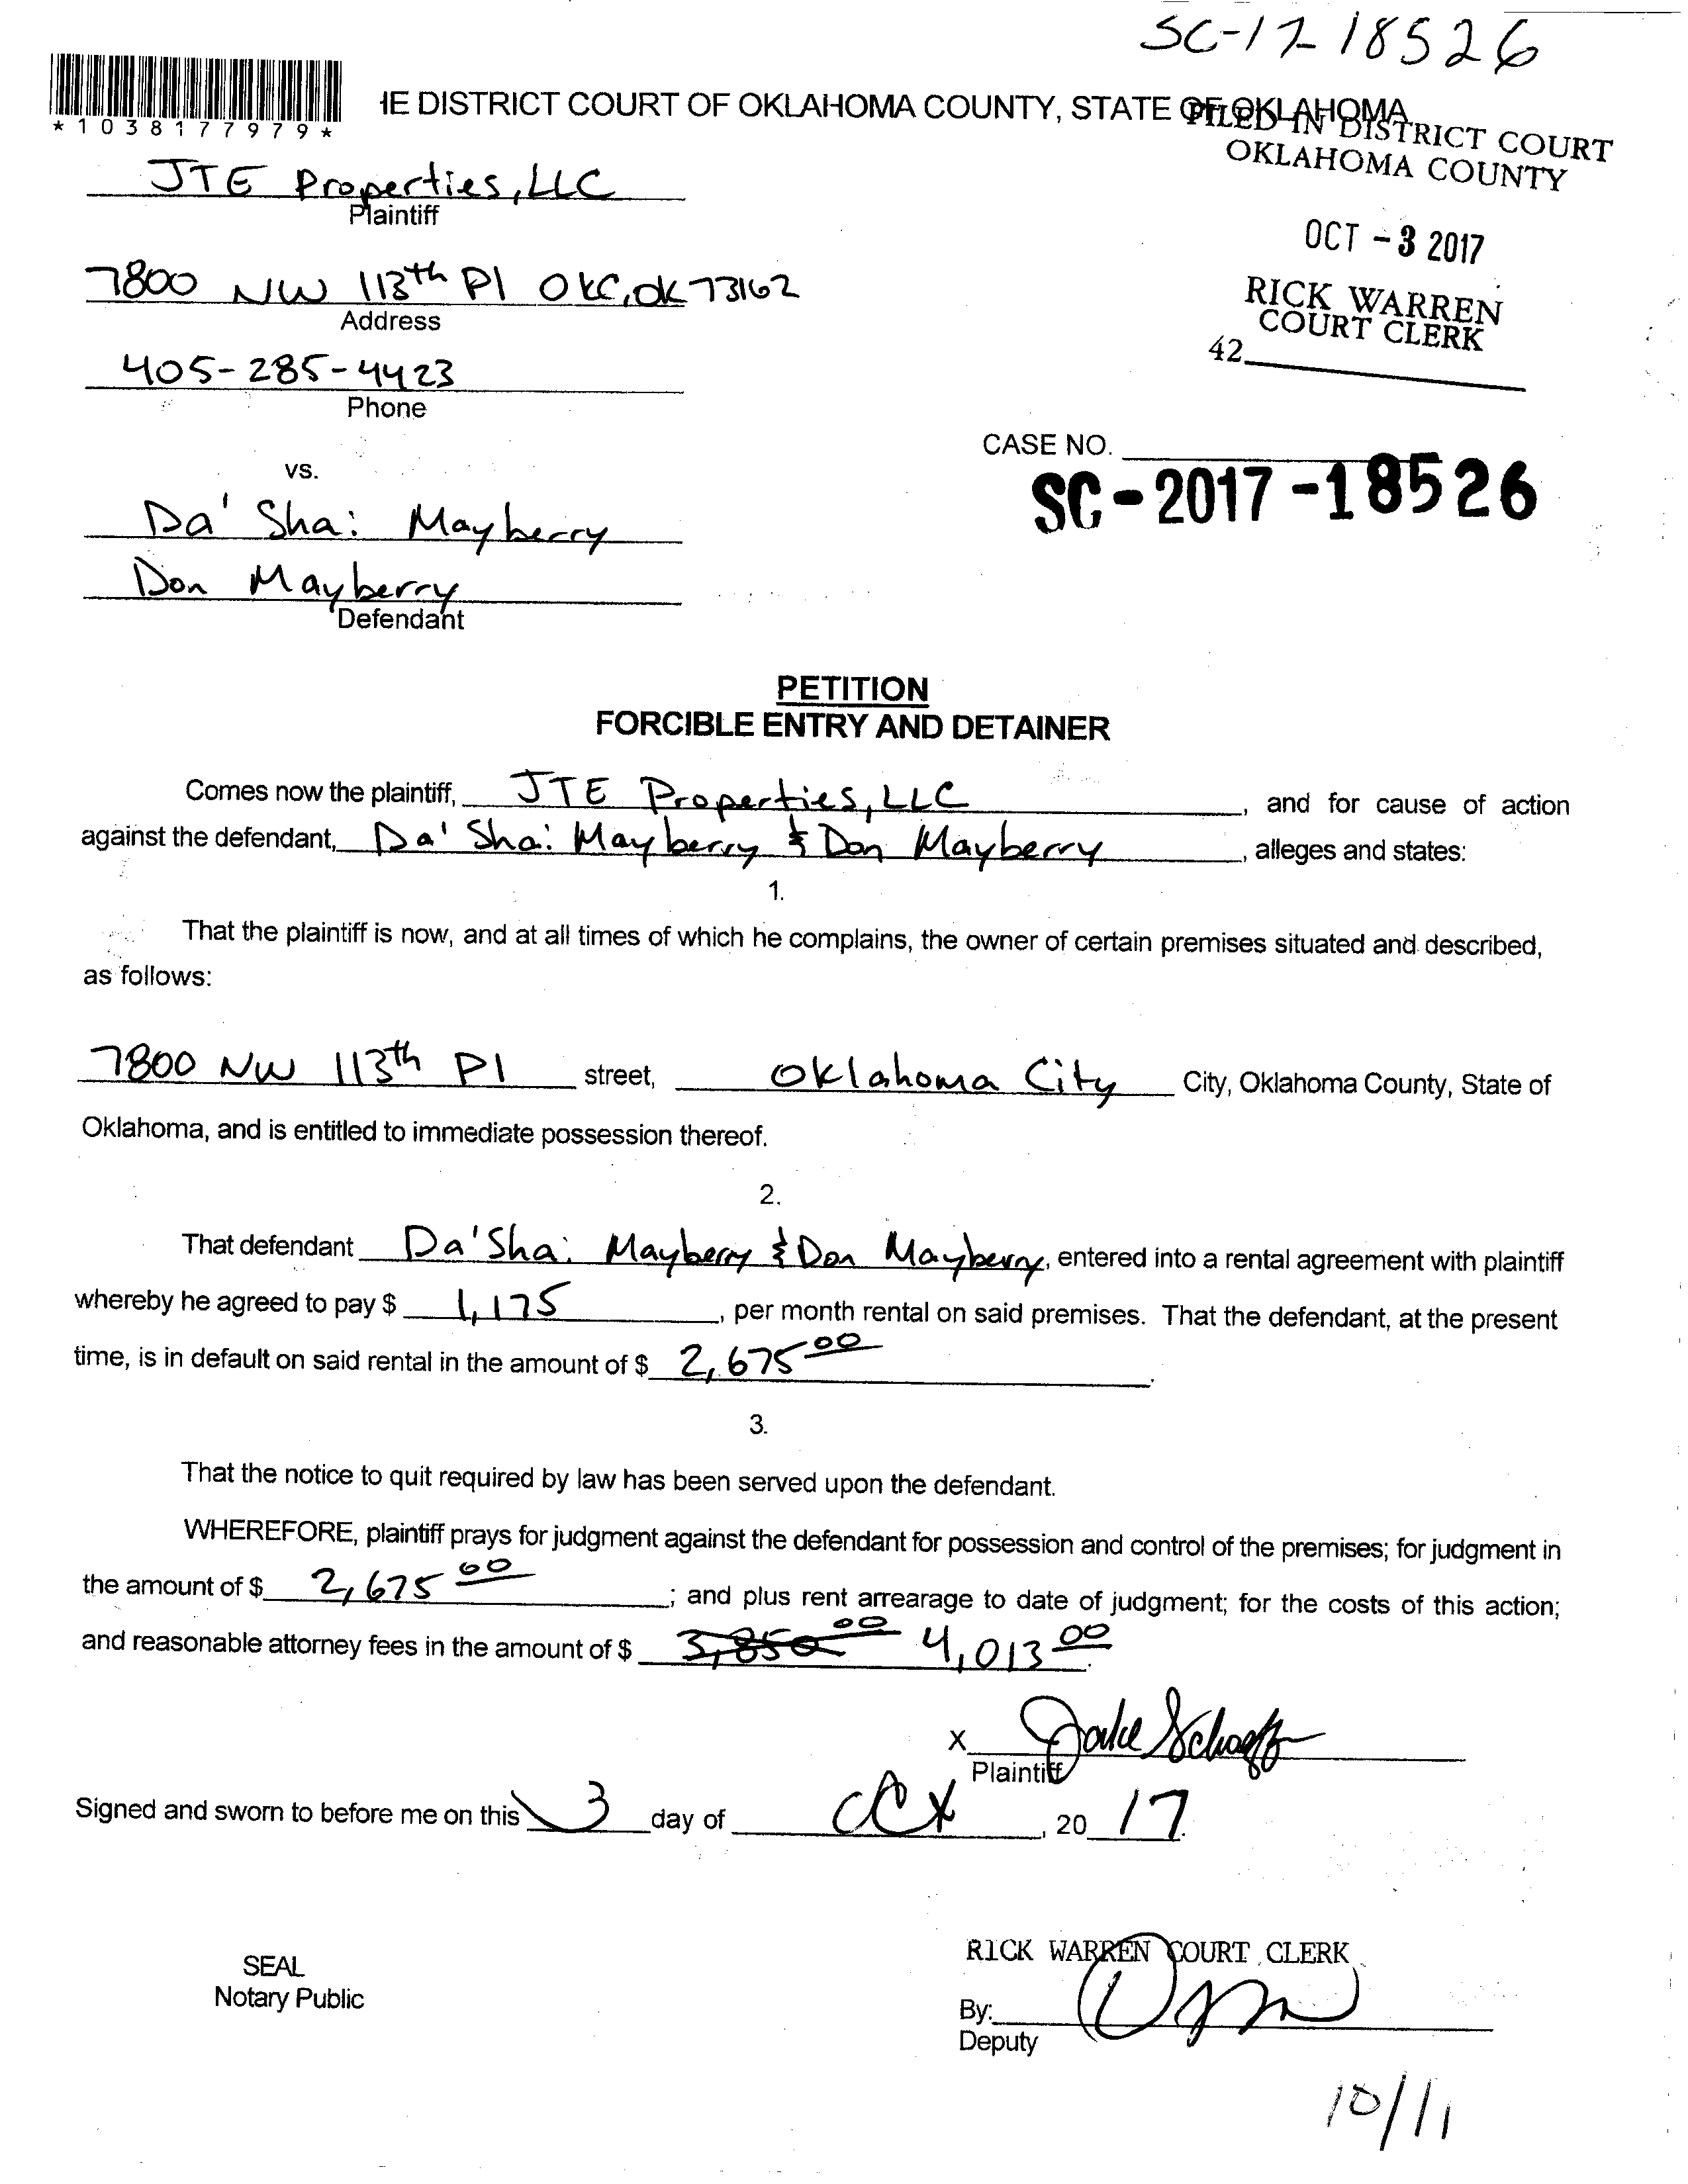 SC-17 18526
*1038177979*
IE DISTRICT COURT OF OKLAHOMA COUNTY, STATE OF OKLAHOMA
FILED IN DISTRICT COURT
OKLAHOMA COUNTY
JTE Properties, LLC
Plaintiff
OCT -3 2017
7800 NW 113th Pl OKC, OK 73162
Address
RICK WARREN
COURT CLERK
42
405-285-4423
Phone
CASE NO.
SC-2017-18526
vs.
Da'Shai Mayberry
Don Mayberry
Defendant
PETITION
FORCIBLE ENTRY AND DETAINER
Comes now the plaintiff, JTE Properties, LLC, and for cause of action
against the defendant, Da'Shai Mayberry & Don Mayberry, alleges and states:
1.
That the plaintiff is now, and at all times of which he complains, the owner of certain premises situated and described,
as follows:
7800 NW 113th Pl street, Oklahoma City City, Oklahoma County, State of
Oklahoma, and is entitled to immediate possession thereof.
2.
That defendant Da'Shai Mayberry & Don Mayberry, entered into a rental agreement with plaintiff
whereby he agreed to pay $ 1,175, per month rental on said premises. That the defendant, at the present
time, is in default on said rental in the amount of $ 2,675 00.
3.
That the notice to quit required by law has been served upon the defendant.
WHEREFORE, plaintiff prays for judgment against the defendant for possession and control of the premises; for judgment in
the amount of $ 2,675 00; and plus rent arrearage to date of judgment; for the costs of this action;
and reasonable attorney fees in the amount of $ 3,850 00 4,013 00.
X Jake
Plaintiff
Signed and sworn to before me on this 3 day of Oct, 20 17.
RICK WARREN COURT CLERK
SEAL
Notary Public
By:
Deputy
10/11